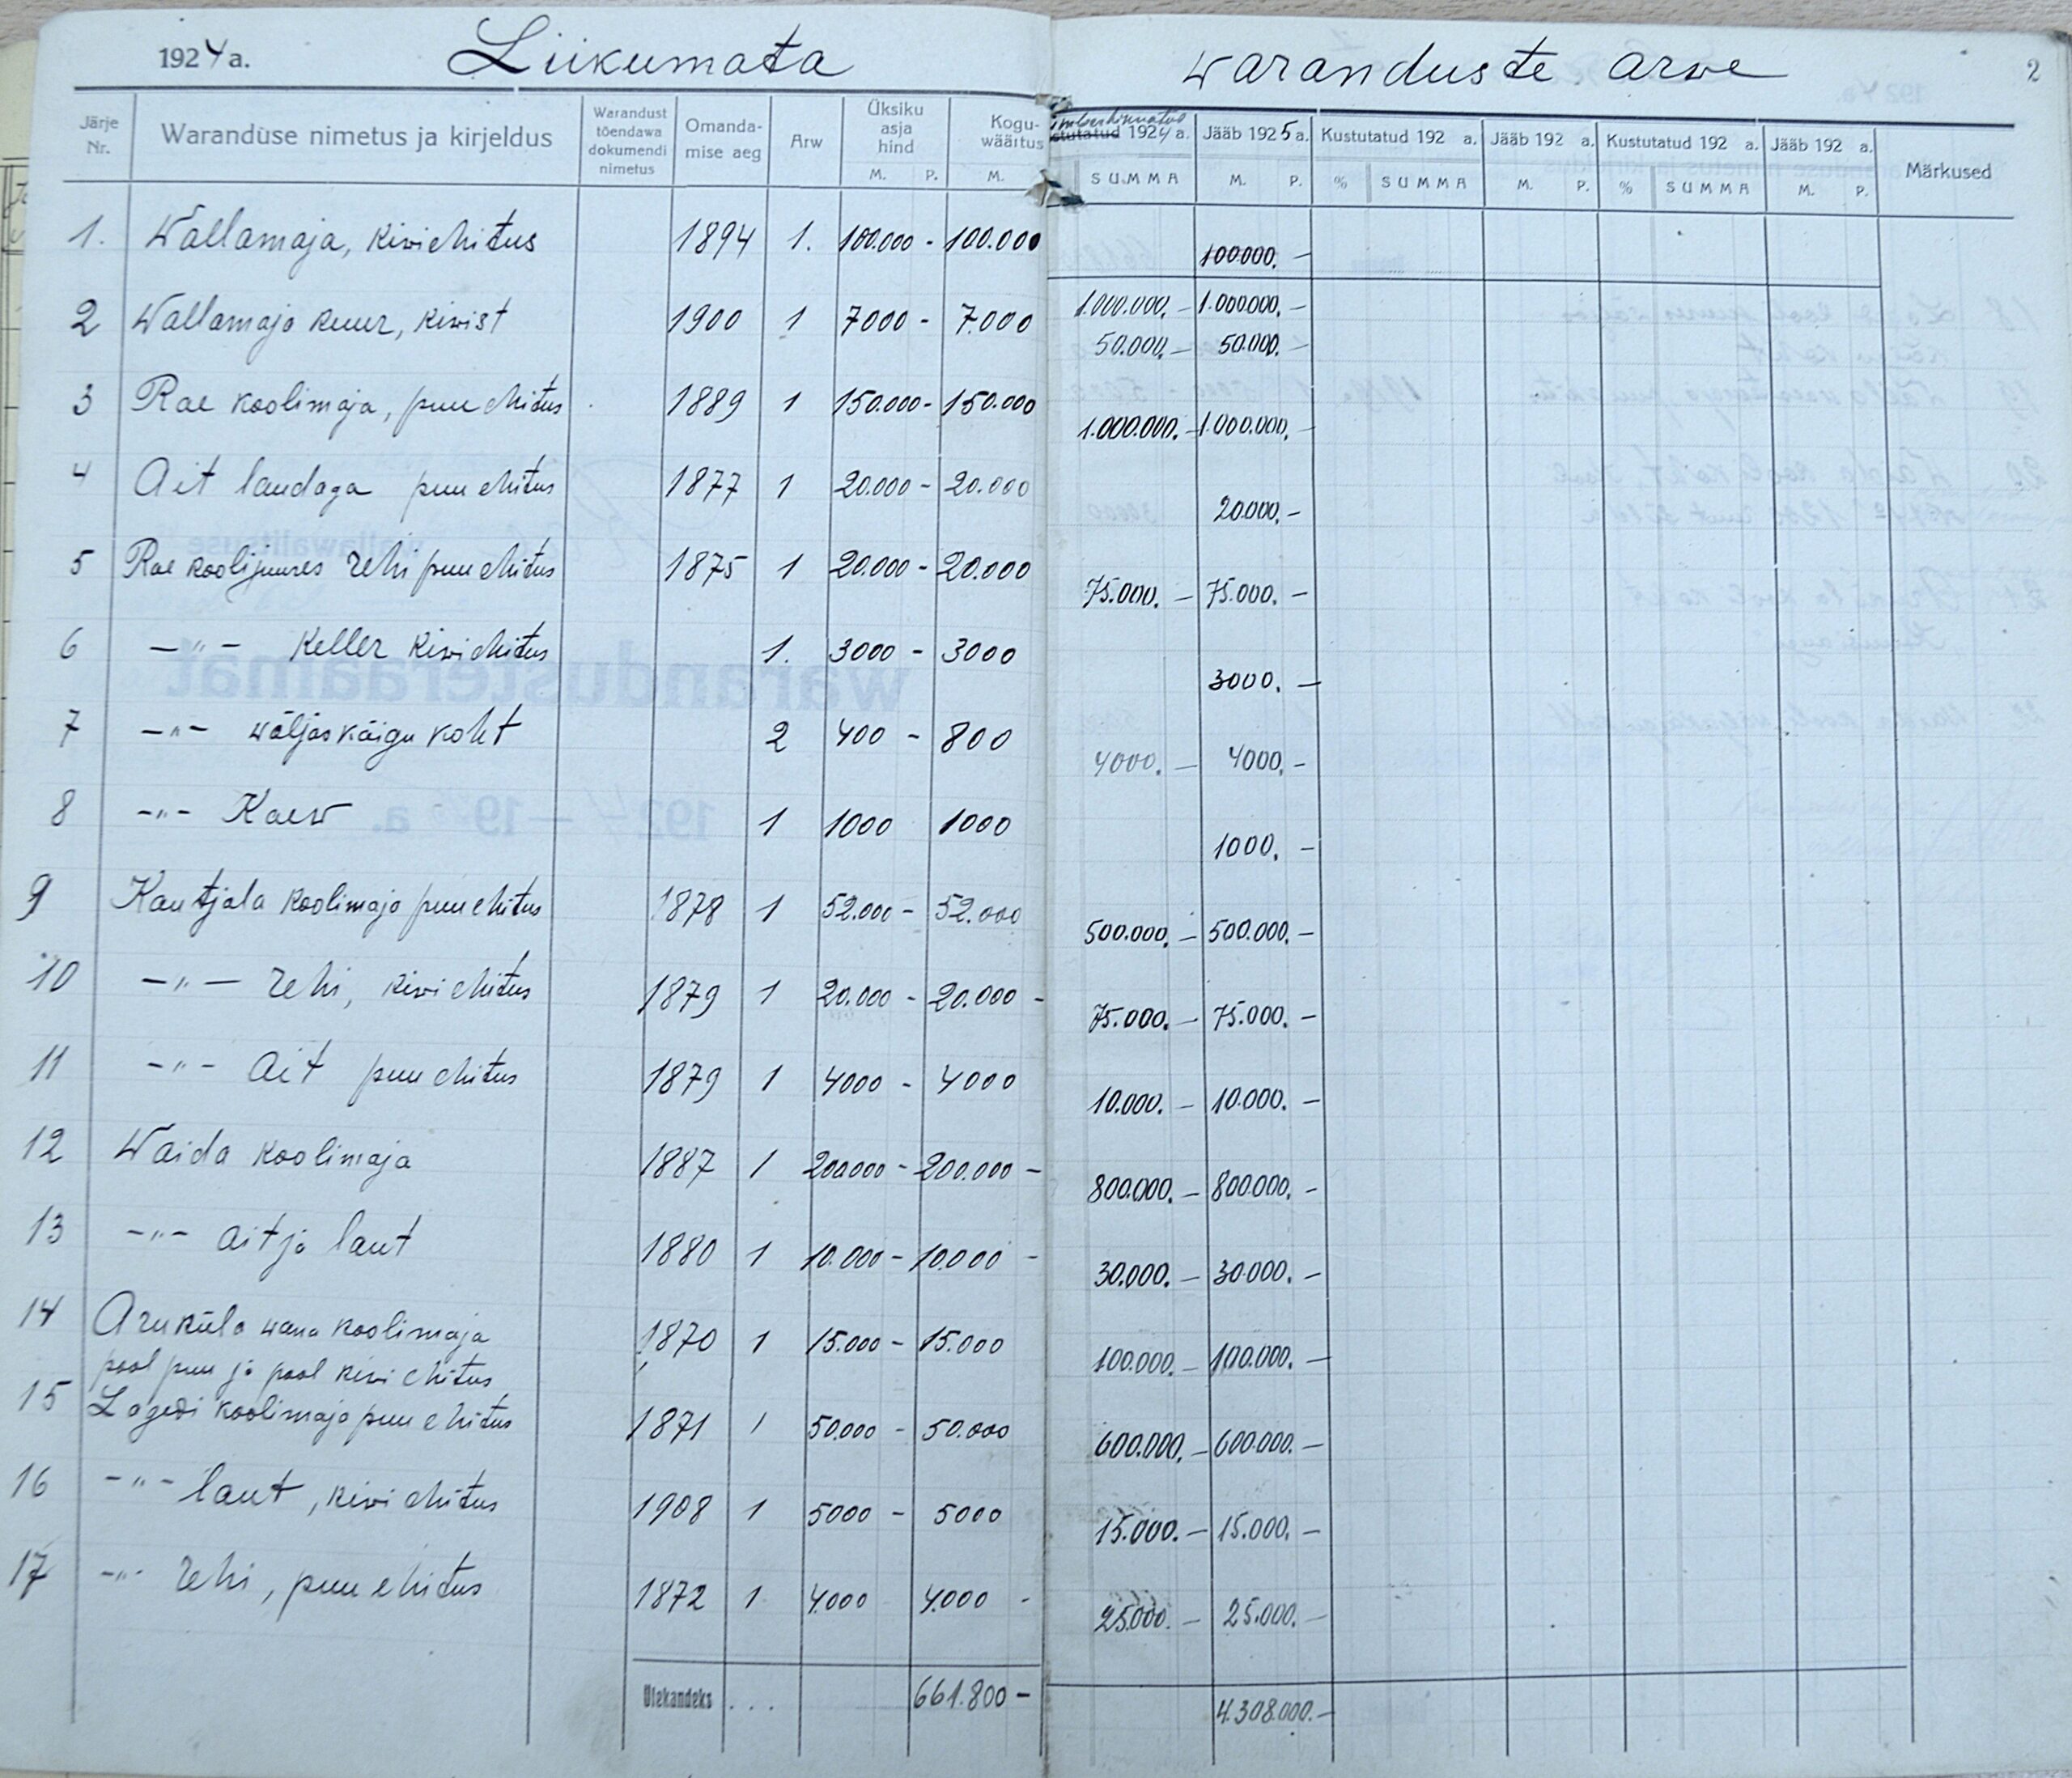 1924 a. Liikumata waranduste arwe 2
Järje Nr. Waranduse nimetus ja kirjeldus Warandust tõendawa dokumendi nimetus Omandamise aeg Arw Üksiku asja hind M. P. Koguwäärtus M. Ümberhinnatud 1924 a. SUMMA Jääb 1925 a. M. P. Kustutatud 192 a. % SUMMA Jääb 192 a. M. P. Kustutatud 192 a. % SUMMA Jääb 192 a. M. P. Märkused
1. Wallamaja, kiviehitus 1894 1. 100.000 - 100.000 100.000. -
1.000.000. - 1.000.000. -
2 Wallamaja kuur, kiwist 1900 1 7000 - 7.000 50.000. - 50.000. -
3 Rae koolimaja, puuehitus 1889 1 150.000 - 150.000 1.000.000. - 1.000.000. -
4 Ait laudaga puuehitus 1877 1 20.000 - 20.000 20.000. -
5 Rae kooli juures rehi puuehitus 1875 1 20.000 - 20.000 75.000. - 75.000. -
6 -"- Keller kiviehitus 1. 3000 - 3000 3000. -
7 -"- wäljaskäigu koht 2 400 - 800 4000. - 4000. -
8 -"- Kaew 1 1000 1000 1000. -
9 Kautjala koolimaja puuehitus 1878 1 52.000 - 52.000 500.000. - 500.000. -
10 -"- rehi, kiviehitus 1879 1 20.000 - 20.000 - 75.000. - 75.000. -
11 -"- Ait puuehitus 1879 1 4000 - 4000 10.000. - 10.000. -
12 Waida koolimaja 1887 1 200.000 - 200.000 - 800.000. - 800.000. -
13 -"- ait ja laut 1880 1 10.000 - 10.000 - 30.000. - 30.000. -
14 Aruküla wana koolimaja 1870 1 15.000 - 15.000 100.000. - 100.000. -
pool puu ja pool kivi ehitus
15 Lagedi koolimaja puuehitus 1871 1 50.000 - 50.000 600.000. - 600.000. -
16 -"- laut, kiviehitus 1908 1 5000 - 5000 15.000. - 15.000. -
17 -"- rehi, puuehitus 1872 1 4000 4.000 - 25.000. - 25.000. -
Ülekandeks . . . 661.800 - 4.308.000. -